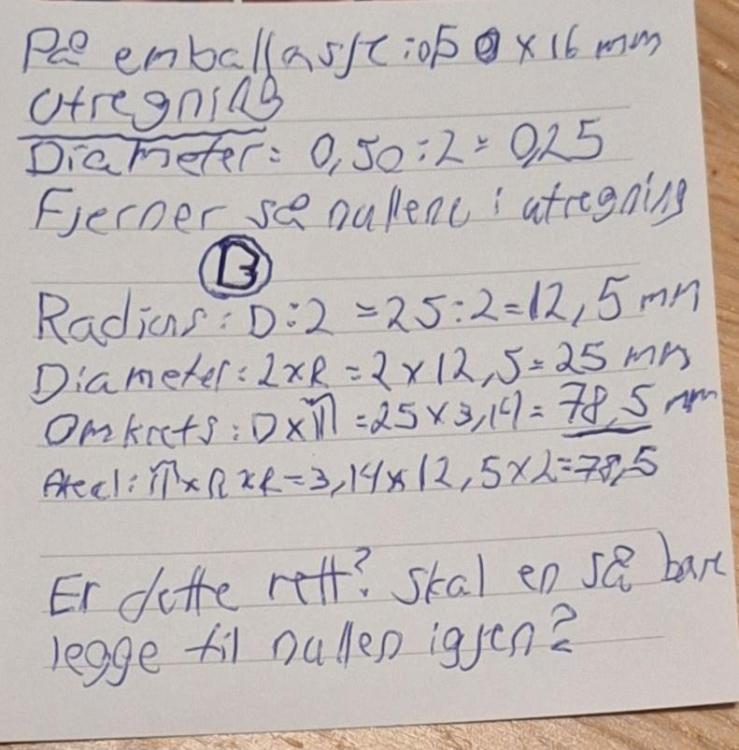 På emballasje: 0,50 x 16 mm
Utregning
Diameter: 0,50 : 2 = 0,25
Fjerner så nullene i utregning
B
Radius: D : 2 = 25 : 2 = 12,5 mm
Diameter: 2xR = 2 x 12,5 = 25 mm
Omkrets: D x π = 25 x 3,14 = 78,5 mm
Areal: π x R x R = 3,14 x 12,5 x 2 = 78,5
Er dette rett? Skal en så bare
legge til nullen igjen?